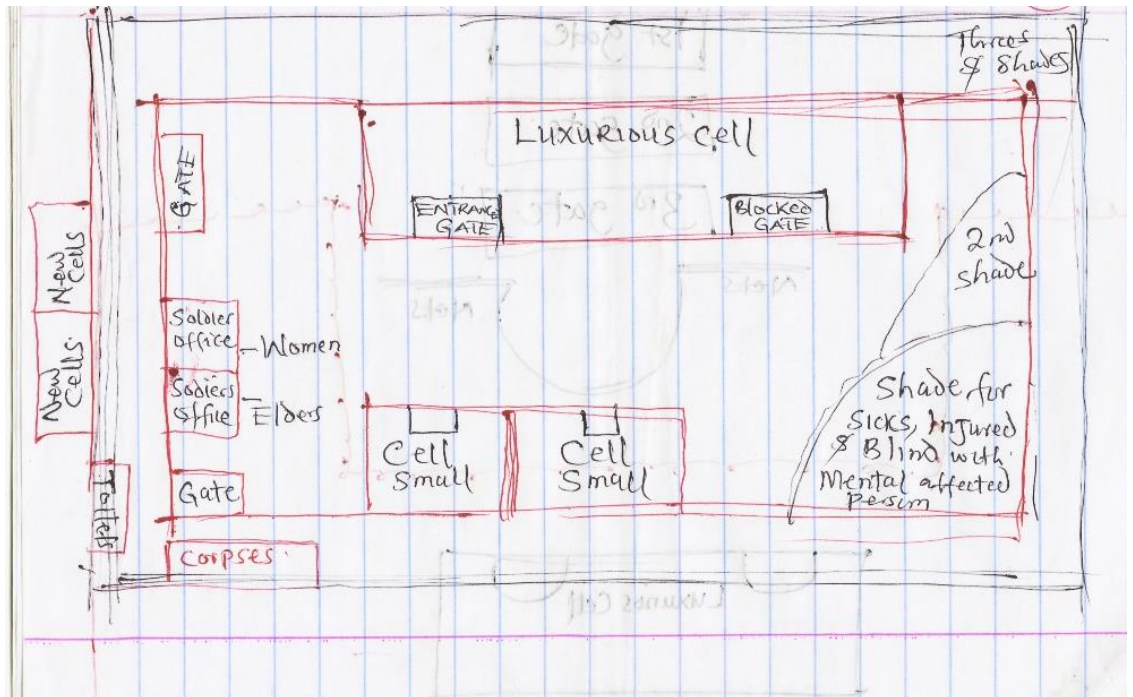 Threes
& Shades
LUXURIOUS Cell
GATE
ENTRANCE
GATE
Blocked
GATE
2nd
shade
New
Cells
New
Cells
Soldier
office
- Women
Sodiers
office
- Elders
Shade for
Sicks, Injured
& Blind with
Mental affected
person
Cell
Small
Cell
Small
Gate
Toilets
Corpses